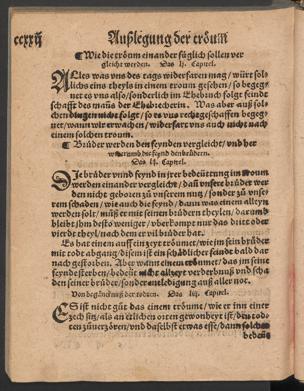 ccxxij Außlegung der tröum
¶ Wie die tröum einander füglich sollen ver
gleicht werden. Das lj. Capitel.
Alles was uns des tags widerfaren mag / würt sol-
lichs eins theyls in einem troum gesehen / so begeg-
net es uns also / sonderlich im Ehebruch folget feind
schafft des mans der Ehebrecherin. Was aber auß sol-
chen dingen nicht folgt / so es uns rechtgeschaffen begeg-
net / wann wir erwachen / widerfart uns auch nicht nach
einem solchen troum.
¶ Brüder werden den feynden vergleicht / vnd her
widerumb die feynd den brüdern.
Das lij. Capitel.
Die brüder vnnd feynd in jrer bedeüttung im troum
werden einander vergleicht / daß unsere brüder wer
den nicht geboren zů unserem nutz / sonder zů unse-
rem schaden / wie auch die feynd / dann was einem alleyn
werden solt / můß er mit seinen brüdern theylen / darumb
bleibt jhm desto weniger / überkompt nur das dritt oder
vierdt theyl / nach dem er vil brüder hat.
Es hat einem auff ein zeyt troumet / wie jm sein brůder
mit todt abgang / disem ist ein schädlicher feindt bald dar
nach gestorben. Aber wann einem troumet / das jm seine
feynd sterben / bedeüt nicht alzeyt verderbnuß vnd scha
den seiner brüder / sonder entledigung auß aller not.
Von begäncknuß der todten. Das liij. Capitel.
Es ist nicht gůt das einem troume / wie er inn einer
zech sitz / als an etlichen orten gewonheyt ist / den tod-
ten zůuerzören / vnd daselbst etwas esse / dann solches
bedeüt